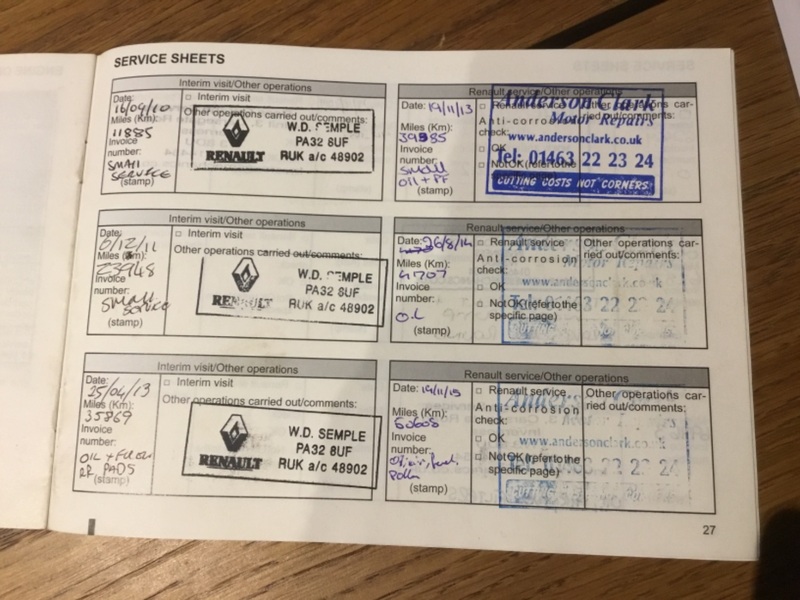 SERVICE SHEETS
Interim visit/Other operations
Date:
16/09/10
Miles (Km):
11885
Invoice
number:
SMALL
SERVICE
(stamp)
□ Interim visit
Other operations carried out/comments:
W.D. SEMPLE
PA32 8UF
RENAULT RUK a/c 48902
Interim visit/Other operations
Date:
6/12/11
Miles (Km):
23948
Invoice
number:
Small
Service
(stamp)
□ Interim visit
Other operations carried out/comments:
W.D. SEMPLE
PA32 8UF
RENAULT RUK a/c 48902
Interim visit/Other operations
Date:
25/04/13
Miles (Km):
35869
Invoice
number:
OIL +
RR PADS
(stamp)
□ Interim visit
Other operations carried out/comments:
W.D. SEMPLE
PA32 8UF
RENAULT RUK a/c 48902
Renault service/Other operations
Date: 19/11/13
Miles (Km):
39385
Invoice
number:
Small
oil + PF
(stamp)
□ Renault service
Anti-corrosion
check:
□ OK
□ Not OK (refer to the
Other operations car-
Anderson Clark
Motor Repairs
www.andersonclark.co.uk
Tel: 01463 22 23 24
CUTTING COSTS NOT CORNERS
Renault service/Other operations
Date: 26/8/14
Miles (Km):
41707
Invoice
number:
OIL
(stamp)
□ Renault service
Anti-corrosion
check:
□ OK
□ Not OK (refer to the
specific page)
Other operations car-
ried out/comments:
Motor Repairs
www.andersonclark.co.uk
Renault service/Other operations
Date: 19/11/15
Miles (Km):
60608
Invoice
number:
Oil, air,
Pollen
(stamp)
□ Renault service
Anti-corrosion
check:
□ OK
□ Not OK (refer to the
specific page)
Other operations car-
ried out/comments:
www.andersonclark.co.uk
27